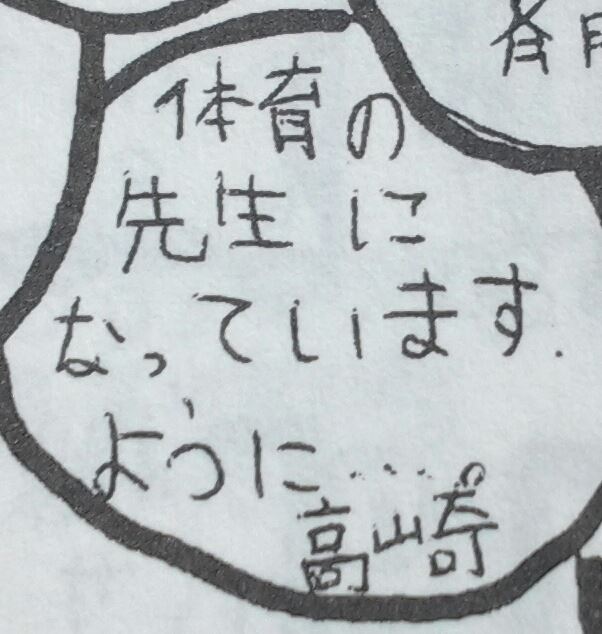 体育の
先生に
なっています.
ように……。
高山崎